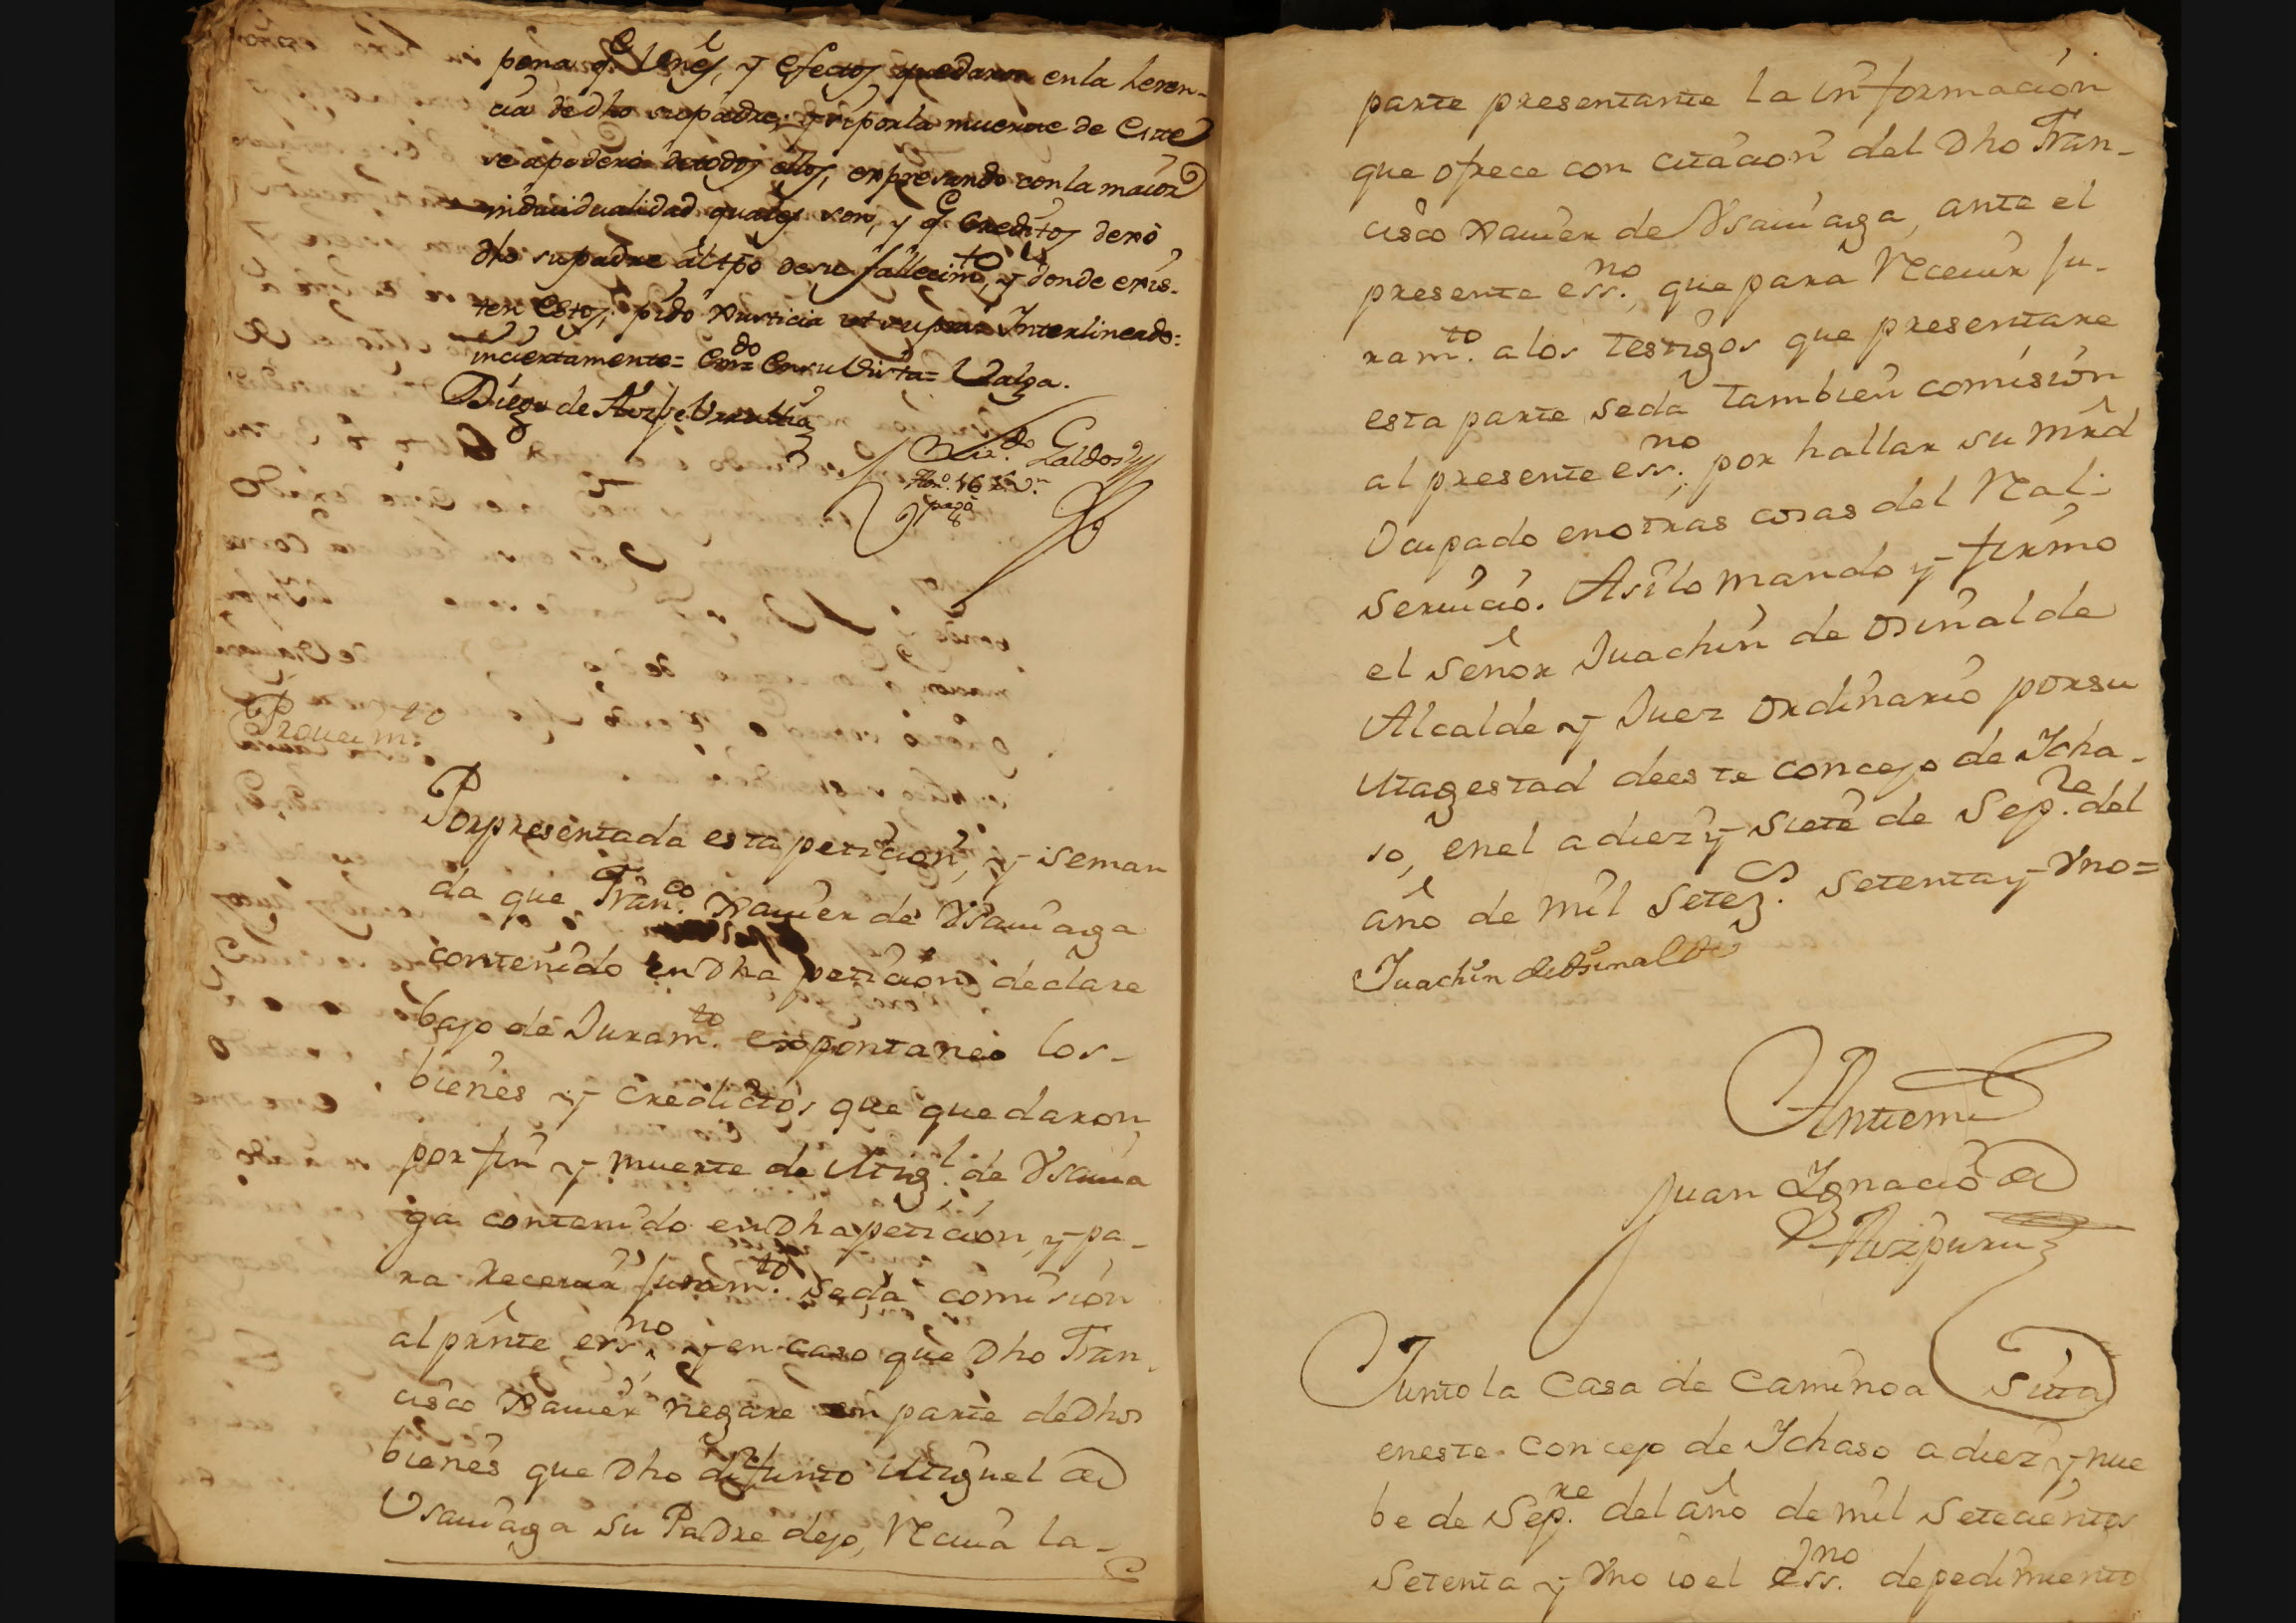 pena q.e vienes, y efectos quedaron en la heren-
cia de dho su padre, y si por la muerte de este
se apoderò de todos ellos, expresando con la maior
indiuidualidad quales son, y q.e creditos dexò
dho su padre al tpo de su fallecim.to, y donde exis-
ten estos; pido Justicia ut supra= Interlineado=
inciertamente= Em.do en su vista= Valga.
Diego de Aizpe Urrutia
Liz.do Galdos
Hon.s 16 r.s v.n
pagò
8
Proueim.to
Por presentada esta peticion, y se man
da que Fran.co Xauier de Ysauiaga
contenido en Dha peticion declare
bajo de Juram.to expontaneo los-
bienes y Credictos que quedaron
por fin y muerte de Mig.l de Ysauia
ga contenido en Dha peticion, y pa-
ra Receuir Juram.to se dà comision
al prnte ess.no y en caso que Dho Fran-
cisco Xauier negare en parte de Dhos
bienes que Dho difunto Miguel de
Ysauiaga su Padre dejo, Reciua la-
parte presentante la informacion
que ofrece con citacion del Dho Fran-
cisco Xauier de Ysauiaga, ante el
presente ess.no, que para Receuir Ju-
ram.to a los testigos que presentare
esta parte seda tambien comision
al presente ess.no por hallar su mrd
Ocupado en otras cosas del Real
seruicio. Asilo mando y firmo
el señor Juachin de Osinalde
Alcalde y Juez ordinario por su
Magestad de este concejo de Icha-
so, en el a diez y siete de Sep.re del
año de mil setez.s setenta y Vno=
Juachin de Osinalde
Antemi
Juan Ignacio de
Aizpuru
Junto la Casa de Caminoa sitta
en este concejo de Ichaso a diez y nue
be de Sep.re del año de mil setecientos
setenta y Vno io el Ess.no de pedimiento